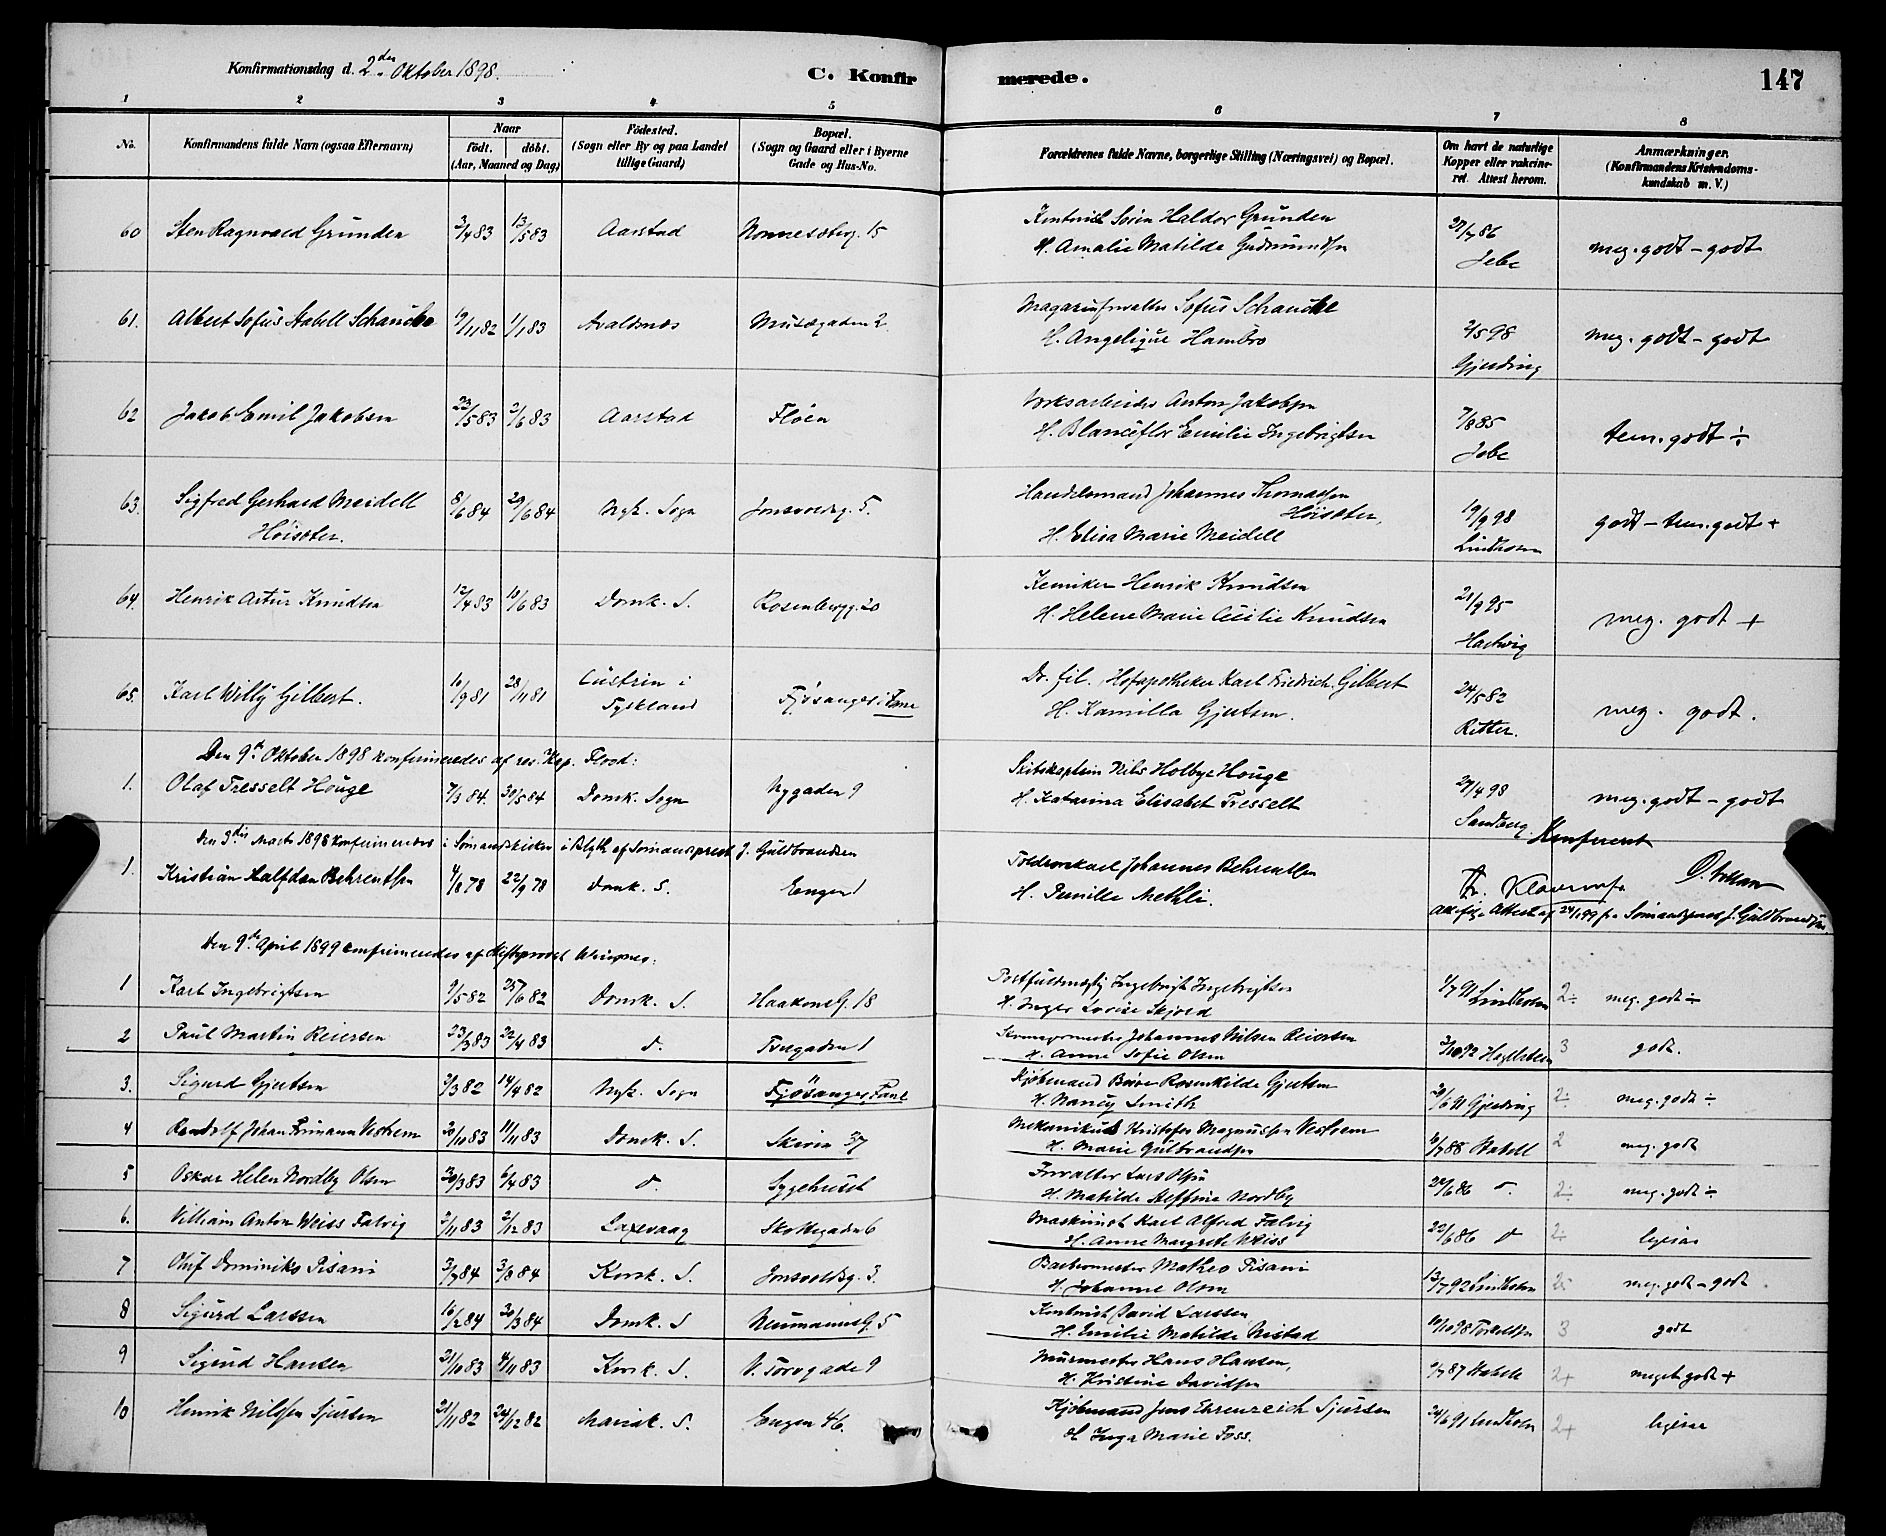 Konfirmationsdag d. 2den Oktober 1898.
C. Konfirmerede.
147
1 2 3 4 5 6 7 8
No.
Konfirmandens fulde Navn (ogsaa Efternavn)
Naar
født. døbt.
(Aar, Maaned og Dag)
Fødested.
(Sogn eller By og paa Landet
tillige Gaard)
Bopæl.
(Sogn og Gaard eller i Byerne
Gade og Hus-No.
Forældrenes fulde Navne, borgerlige Stilling (Næringsvei) og Bopæl.
Om havt de naturlige
Kopper eller vakcine-
ret. Attest herom.
Anmærkninger.
(Konfirmandens Kristendoms-
kundskab m. V.)
60 Sten Ragnvald Grunden 3/4 83 13/5 83 Aarstad Nonnesæterg. 15 Kontorist Sørin Haldor Grunden
H. Amalie Matilde Gudmundsen 27/7 86 Jebe meg. godt - godt
61. Albert Sofus Stabell Schancke 19/11 82 1/1 83 Avaldsnes Musægaden 2. Magasinforvalter Sofus Schancke
H. Angelique Hambro 2/5 98 Gjerding meg. godt - godt
62 Jakob Emil Jakobsen 23/5 83 3/6 83 Aarstad Fløen Verksarbeider Anton Jakobsen
H. Blanceflor Emilie Ingebrigtsen 7/8 85 Jebe tem. godt ÷
63. Sigfred Gerhard Meidell
Høisæter. 8/6 84 29/6 84 Nyk. Sogn Jonsvoldsg. 5. Handelsmand Johannes Thomassen
Høisæter,
H. Elisa Marie Meidell 19/9 98 Lindholm godt - tem. godt +
64. Henrik Artur Knudsen 12/4 83 10/6 83 Domk. S. Rosenbergg. 20 Kemiker Henrik Knudsen
H. Helene Marie Cecilie Knudsen 21/9 95 Hartwig meg. godt +
65. Karl Willy Gilbert. 10/9 81 28/11 81 Cüstrin i
Tyskland Fjøsanger i Fane Dr. fil. Hofapotheker Karl Friedrich Gilbert
H. Kamilla Gjertsen. 24/5 82 Ritter. meg. godt.
Den 9de Oktober 1898 konfirmeredes af res. Kap. Flood:
1. Olaf Tresselt Houge 7/3 84. 30/5 84 Domk. Sogn Nygaden 9 Skibskaptein Nils Holbye Houge
H. Katarina Elisabet Tresselt 27/4 98 Sandberg meg. godt - godt
Den 3die Marts 1898 konfirmeredes i Sømandskirken i Blyth af Sømandsprest J. Guldbrandsen
Konfirmert
1. Kristian Halfdan Behrentsen 4/8 78 22/9 78 Domk. S. Engen 1 Toldvorkarl Johannes Behrentsen
H. Pernille Methli.
Attest af 24/1 99 fra Sømandsprest J. Guldbrandsen.
Den 9de April 1899 konfirmeredes af Stiftsprovst Wrisnes:
1 Karl Ingebrigtsen 9/5 82 25/6 82 Domk. S. HaakonsG. 18 Postfuldmægtig Ingebrigt Ingebrigtsen
H. Inger Lovise Skjold 1/7 91 Lindholm 2÷ meg. godt ÷
2 Paul Martin Reiersen 23/3 83 22/4 83 d. Torvgaden 1 Johannes Nilsen Reiersen
H. Anne Sofie Olsen 3/10 92 3 godt.
3. Sigurd Gjertsen 3/3 82 14/4 82 Nyk. Sogn Fjøsanger, Fane Kjøbmand Børre Rosenkilde Gjertsen
H. Nancy Smith 20/6 91 Gjerding 2÷ meg. godt ÷
4 Randolf Johan Frimann Vestrem 20/10 83 11/11 83 Domk. S. Skivin 37 Mekanikus Kristofer Magnussen Vestrem
H. Marie Gulbrandsen 6/7 88 Stabell 2 meg. godt
5 Oskar Helen Nordby Olsen 20/3 83 6/4 83 d. Sygehuset Forvalter Lars Olsen
H. Matilde Steffine Nordby 29/6 86 d. 2÷ meg. godt ÷
6. Villiam Anton Weiss Falvig 3/11 83 2/12 83 Laxevaag Skottegaden 6 Maskinist Karl Alfred Falvig
H. Anne Margrete Weiss 22/6 86 d 2÷ ligesaa
7 Oluf Dominiks Pisani 3/7 84 3/8 84 Korsk. S. Jonsvoldsg. 3. Badermester Matheo Pisani
H. Johanne Olsen 13/7 92 Lindholm 2÷ meg. godt - godt
8 Sigurd Larssen 16/2 84 30/3 84 Domk. S NeumannsG. 5 Kontorist David Larssen
H. Emilie Matilde Nistad 10/10 98 Torkelsen 3 godt
9 Sigurd Hansen 21/10 83 4/11 83 Korsk. S. V. Torvgade 9 Murmester Hans Hansen,
H. Kristine Davidsen 9/7 87 Stabell 2+ meget godt +
10 Henrik Nilssen Sjursen 21/11 82 24/12 82 Mariak. S. Engen 46. Kjøbmand Jens Ehrenreich Sjursen
H Inga Marie Foss. 24/6 91 Lindholm 2+ ligesaa